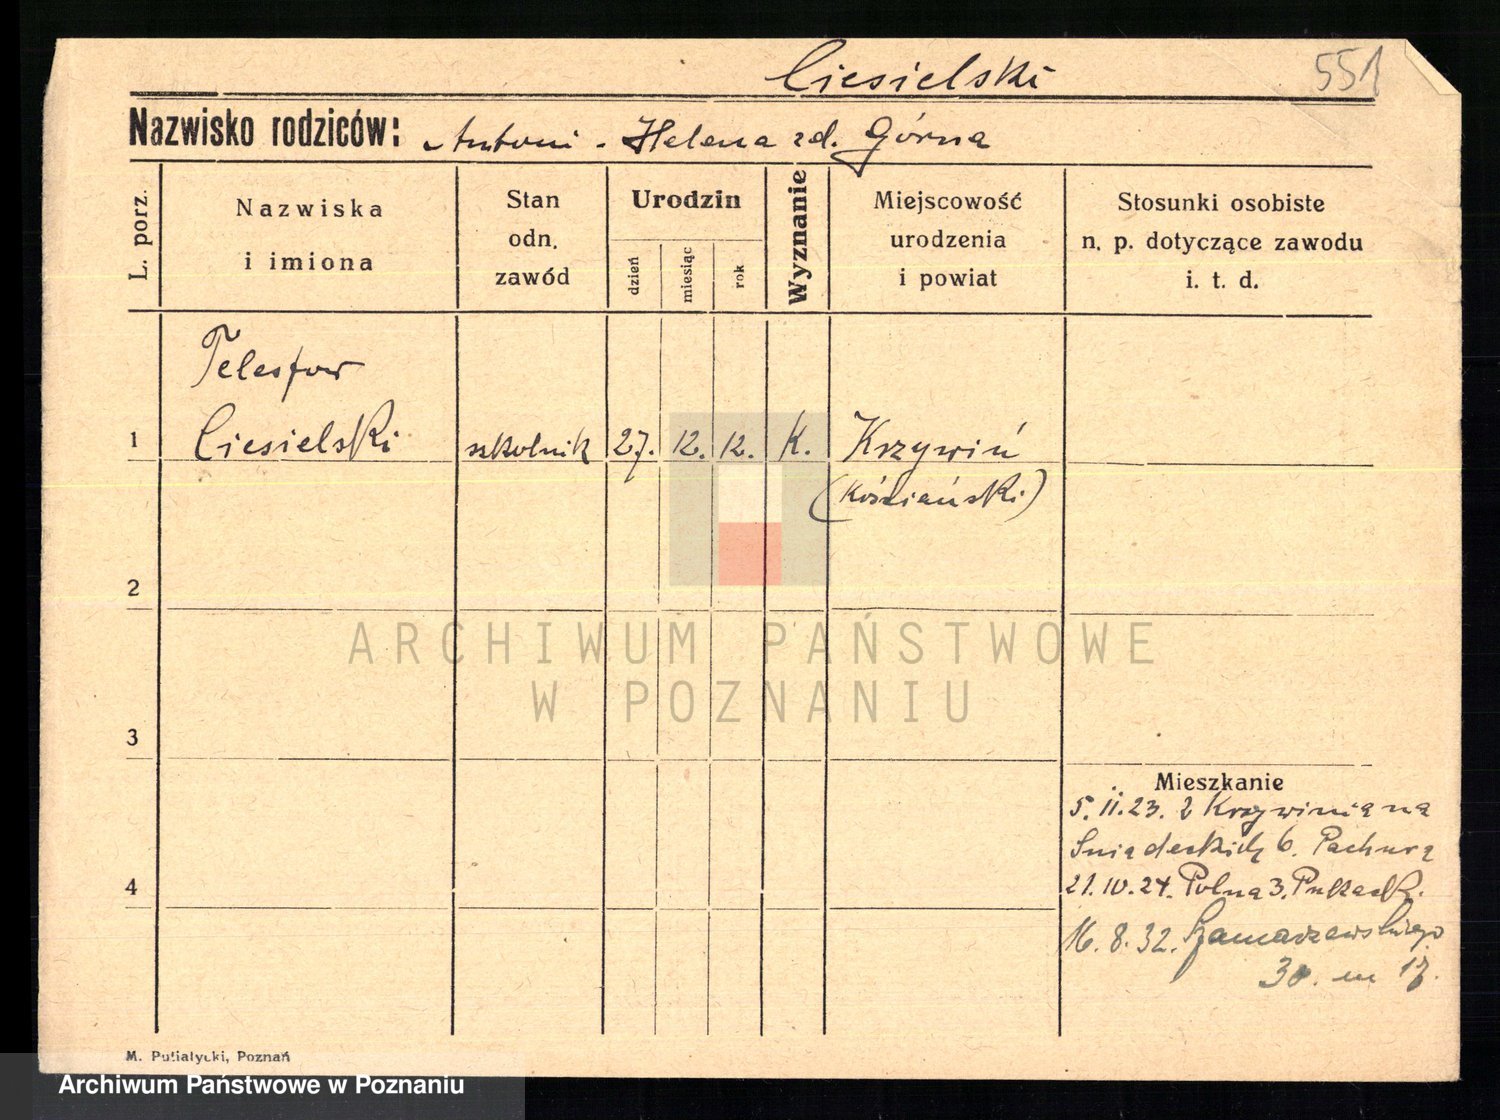 Ciesielski
551
Nazwisko rodziców: Antoni - Helena zd. Górna
L. porz.
Nazwiska
i imiona
Stan
odn.
zawód
Urodzin
dzień
miesiąc
rok
Wyznanie
Miejscowość
urodzenia
i powiat
Stosunki osobiste
n. p. dotyczące zawodu
i. t. d.
Telesfor
1 Ciesielski szkolnik 27. 12. 12. K. Krzywiń
(Kościański)
2
ARCHIWUM PAŃSTWOWE
W POZNANIU
3
Mieszkanie
5. II. 23. z Krzywinia na
Śniadeckich 6. Pachura
4
21. IV. 24. Polna 3.
16. 8. 32. Szamarzewskiego
30. m 17.
M. Putiatycki, Poznań
Archiwum Państwowe w Poznaniu